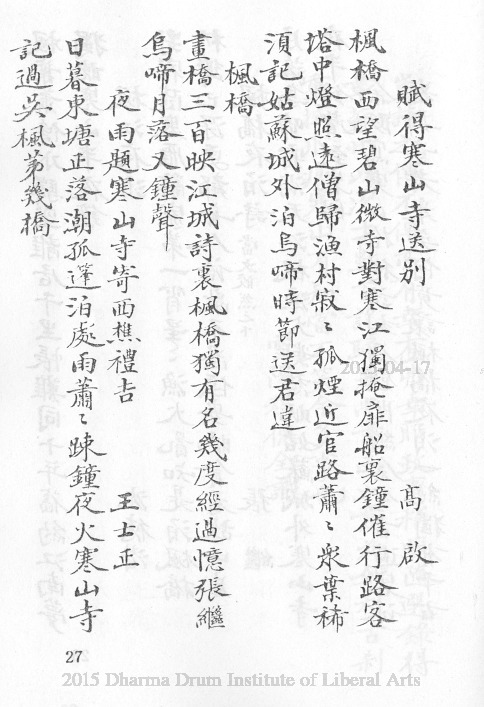 賦得寒山寺送別 髙啟
楓橋西望碧山微寺對寒江獨掩扉船裏鐘催行路客
塔中燈照遠僧歸漁村寂〻孤煙近官路蕭〻衆葉稀
須記姑蘇城外泊烏啼時節送君違
楓橋
畫橋三百映江城詩裏楓橋獨有名幾度經過憶張繼
烏啼月落又鐘聲
夜雨題寒山寺寄西樵禮吉 王士正
日暮東塘正落潮孤篷泊處雨蕭〻踈鐘夜火寒山寺
記過吳楓第幾橋
27
2015 Dharma Drum Institute of Liberal Arts